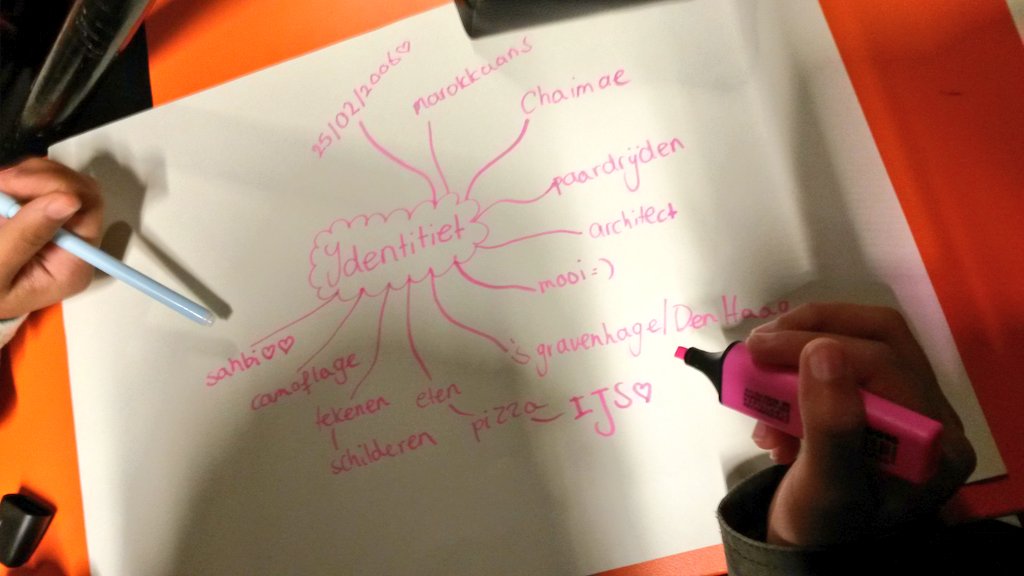 25/02/2006♡
marokkaans
Chaimae
paardrijden
architect
Ydentitiet
mooi=)
's gravenhage/Den Haag
sahbi♡♡
camoflage
tekenen
eten
pizza
IJS♡
schilderen